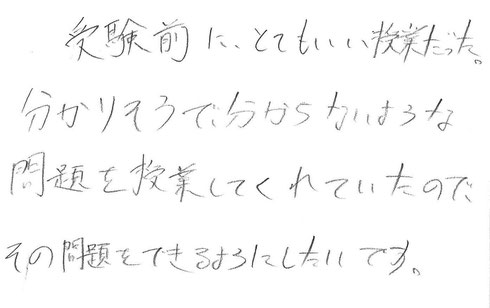 受験前に、とてもいい授業だった。
分かりそうで分からないような
問題を授業してくれていたので
その問題をできるようにしたいです。